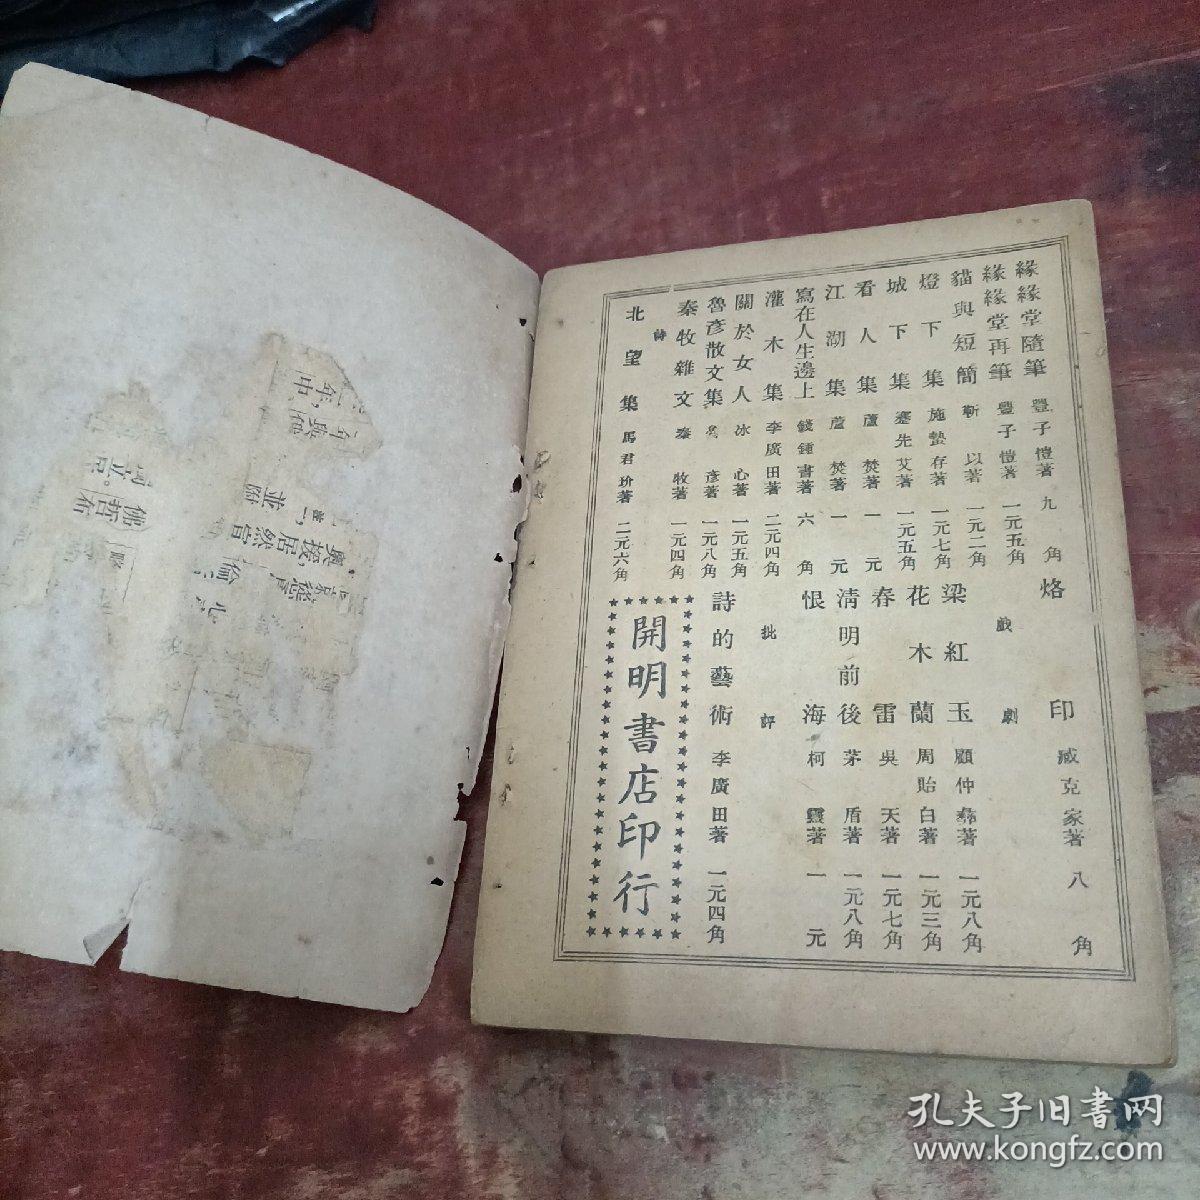 緣緣堂隨筆 豐子愷著 九角
緣緣堂再筆 豐子愷著 一元五角
貓與短簡 靳以著 一元二角
燈下集 施蟄存著 一元七角
城下集 蹇先艾著 一元五角
看人集 蘆焚著 一元
江湖集 蘆焚著 一元
寫在人生邊上 錢鍾書著 六角
灌木集 李廣田著 二元四角
關於女人 冰心著 一元五角
魯彥散文集 魯彥著 一元八角
秦牧雜文 秦牧著 一元四角
詩
北望集 馬君玠著 二元六角
烙印 臧克家著 八角
戲劇
梁紅玉 顧仲彝著 一元八角
花木蘭 周貽白著 一元三角
春雷 吳天著 一元七角
清明前後 茅盾著 一元八角
恨海 柯靈著 一元
批評
詩的藝術 李廣田著 一元四角
開明書店印行
孔夫子旧書网
www.kongfz.com